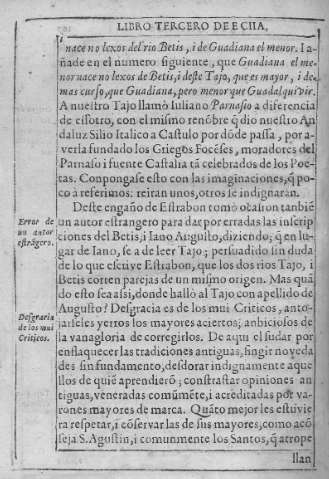 LIBRO TERCERO DE ECIIA.
nace no lexos del rio Betis, i de Guadiana el menor. I a-
ñade en el numero siguiente, que Guadiana el me-
nor nace no lexos de Betis, i deste Tajo, que es mayor, i de
mas curso, que Guadiana, pero menor que Guadalquivir.
A nuestro Tajo llamò Iuliano Parnasio a diferencia
de essotro, con el mismo renōbre q̃ dio nuestro An
daluz Silio Italico a Castulo por dōde passa, por a-
verla fundado los Griegos Focēses, moradores del
Parnaso i fuente Castalia tā celebrados de los Poe-
tas. Conpongase esto con las imaginaciones, q̃ po-
co à referimos: reiran unos, otros se indignaràn.
Deste engaño de Estrabon tomò ocasiō tanbiē
un autor estrangero para dar por erradas las inscrip
ciones del Betis, i Iano Augusto, diziendo; q̃ en lu-
gar de Iano, se a de leer Tajo; persuadido sin duda
de lo que escrive Estrabon, que los dos rios Tajo, i
Betis corren parejas de un mismo origen. Mas quā
do esto sea assi, donde hallò al Tajo con apellido de
Augusto? Desgracia es de los mui Criticos, anto-
jarseles yerros los mayores aciertos; anbiciosos de
la vanagloria de corregirlos. De aqui el sudar por
enflaquecer las tradiciones antiguas, fingir noveda
des sin fundamento, desdorar indignamente aque
llos de quiē aprendierō; constrastar opiniones an
tiguas, veneradas comūmēte, i acreditadas por va-
rones mayores de marca. Quāto mejor les estuvie
ra respetar, i cōservar las de sus mayores, como acō
seja S. Agustin, i comunmente los Santos, q̃ atrope
llan
Error de
un autor
estrāgero.
Desgracia
de los mui
Criticos.